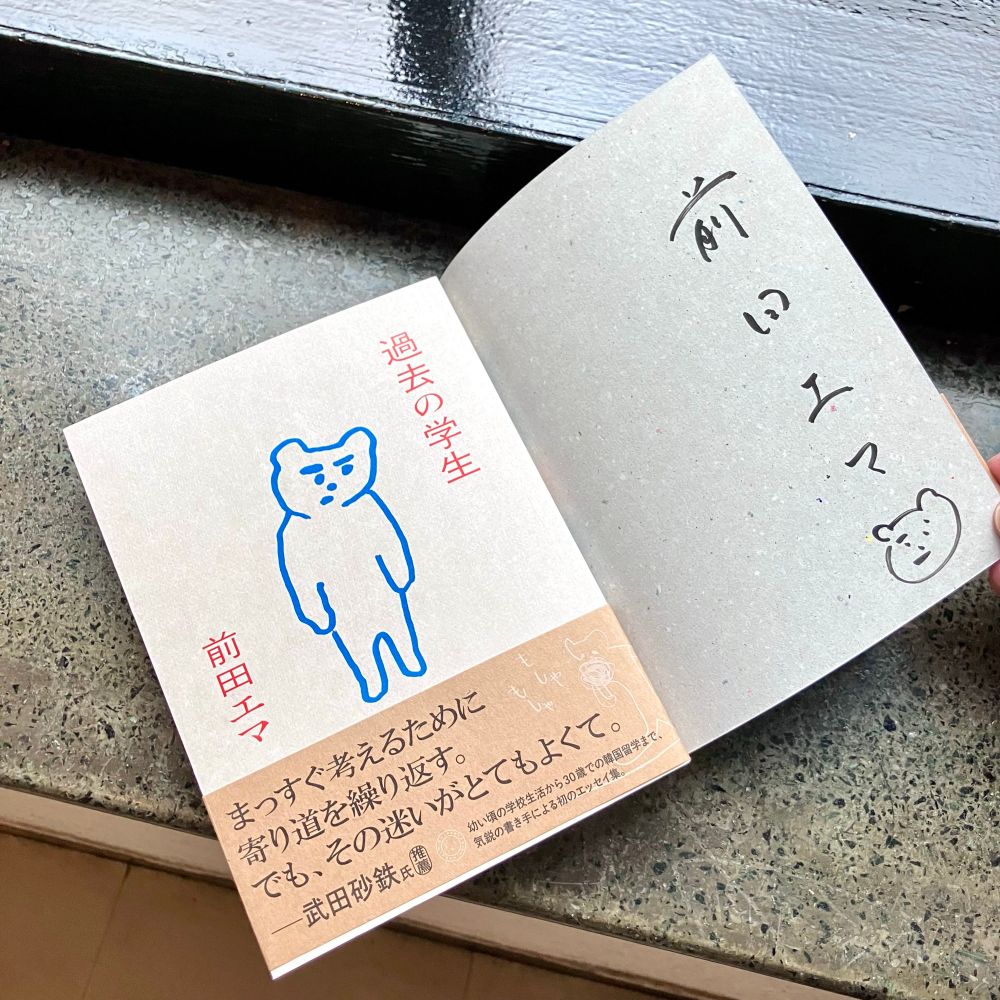 過去の学生
前田エマ
もしゃ
もしゃ
まっすぐ考えるために
寄り道を繰り返す。
でも、その迷いがとてもよくて。
―武田砂鉄氏推薦
幼い頃の学校生活から30歳での韓国留学まで、
気鋭の書き手による初のエッセイ集。
前田エマ